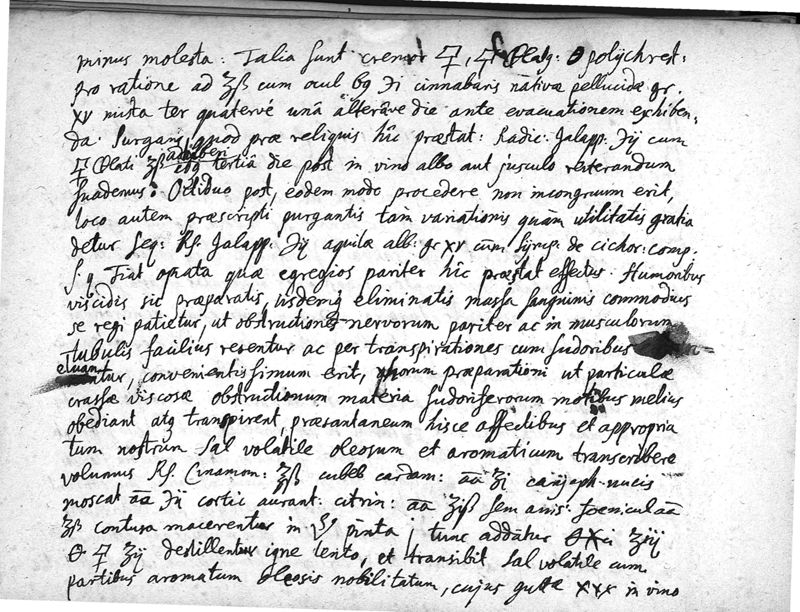 minus molesta: Talia sunt cremor 🜿, polychrest:
pro ratione ad ʒß cum ocul 69 ℈i cinnabaris nativæ pellucidæ gr.
XV mista ter quatervé unâ alterâve die ante evacuationem exhiben,
da. Purgans, quod præ reliquis hîc præstat: Radic. Jalapp. ℈ij cum
ʒß tertiâ die post in vino albo aut jusculo reiterandum
suademus. Octiduo post, eodem modo procedere non incongruum erit,
loco autem præscripti purgantis tam variationis quàm utilitatis gratia
detur seq: Rs. Jalapp. ℈ij aquilæ alb: gr XV cùm Syrup: de cichor: comp.
S. q Fiat opiata quæ egregios pariter hîc præstat effectus. Humoribus
viscidis sic præparatis, iisdemq eliminatis massa sanguinis commodius
se regi patietur, ut obstructiones nervorum pariter ac in musculorum
tubulis facilius reserentur ac per transpirationes cum sudoribus
eluantur, convenientissimum erit, præparationi ut particulæ
crassæ viscosæ obstructionum materia sudoriferorum motibus melius
obediant atq transpirent, præsentaneum hisce affectibus et appropria
tum nostrum Sal volatile oleosum et aromaticum transcribere
volumus Rs. Cinamom: ʒß cubeb cardam: āā ʒi carÿoph. nucis
moscat āā ℈ij cortic aurant: citrin: āā ʒiß sem anis: foeniculāā
ʒß contusa macerentur in pinta j tunc addātur
ʒij destillentur igne lento, et transibit Sal volatile cum
partibus aromatum oleosis nobilitatum, cujus guttæ XXX in vino